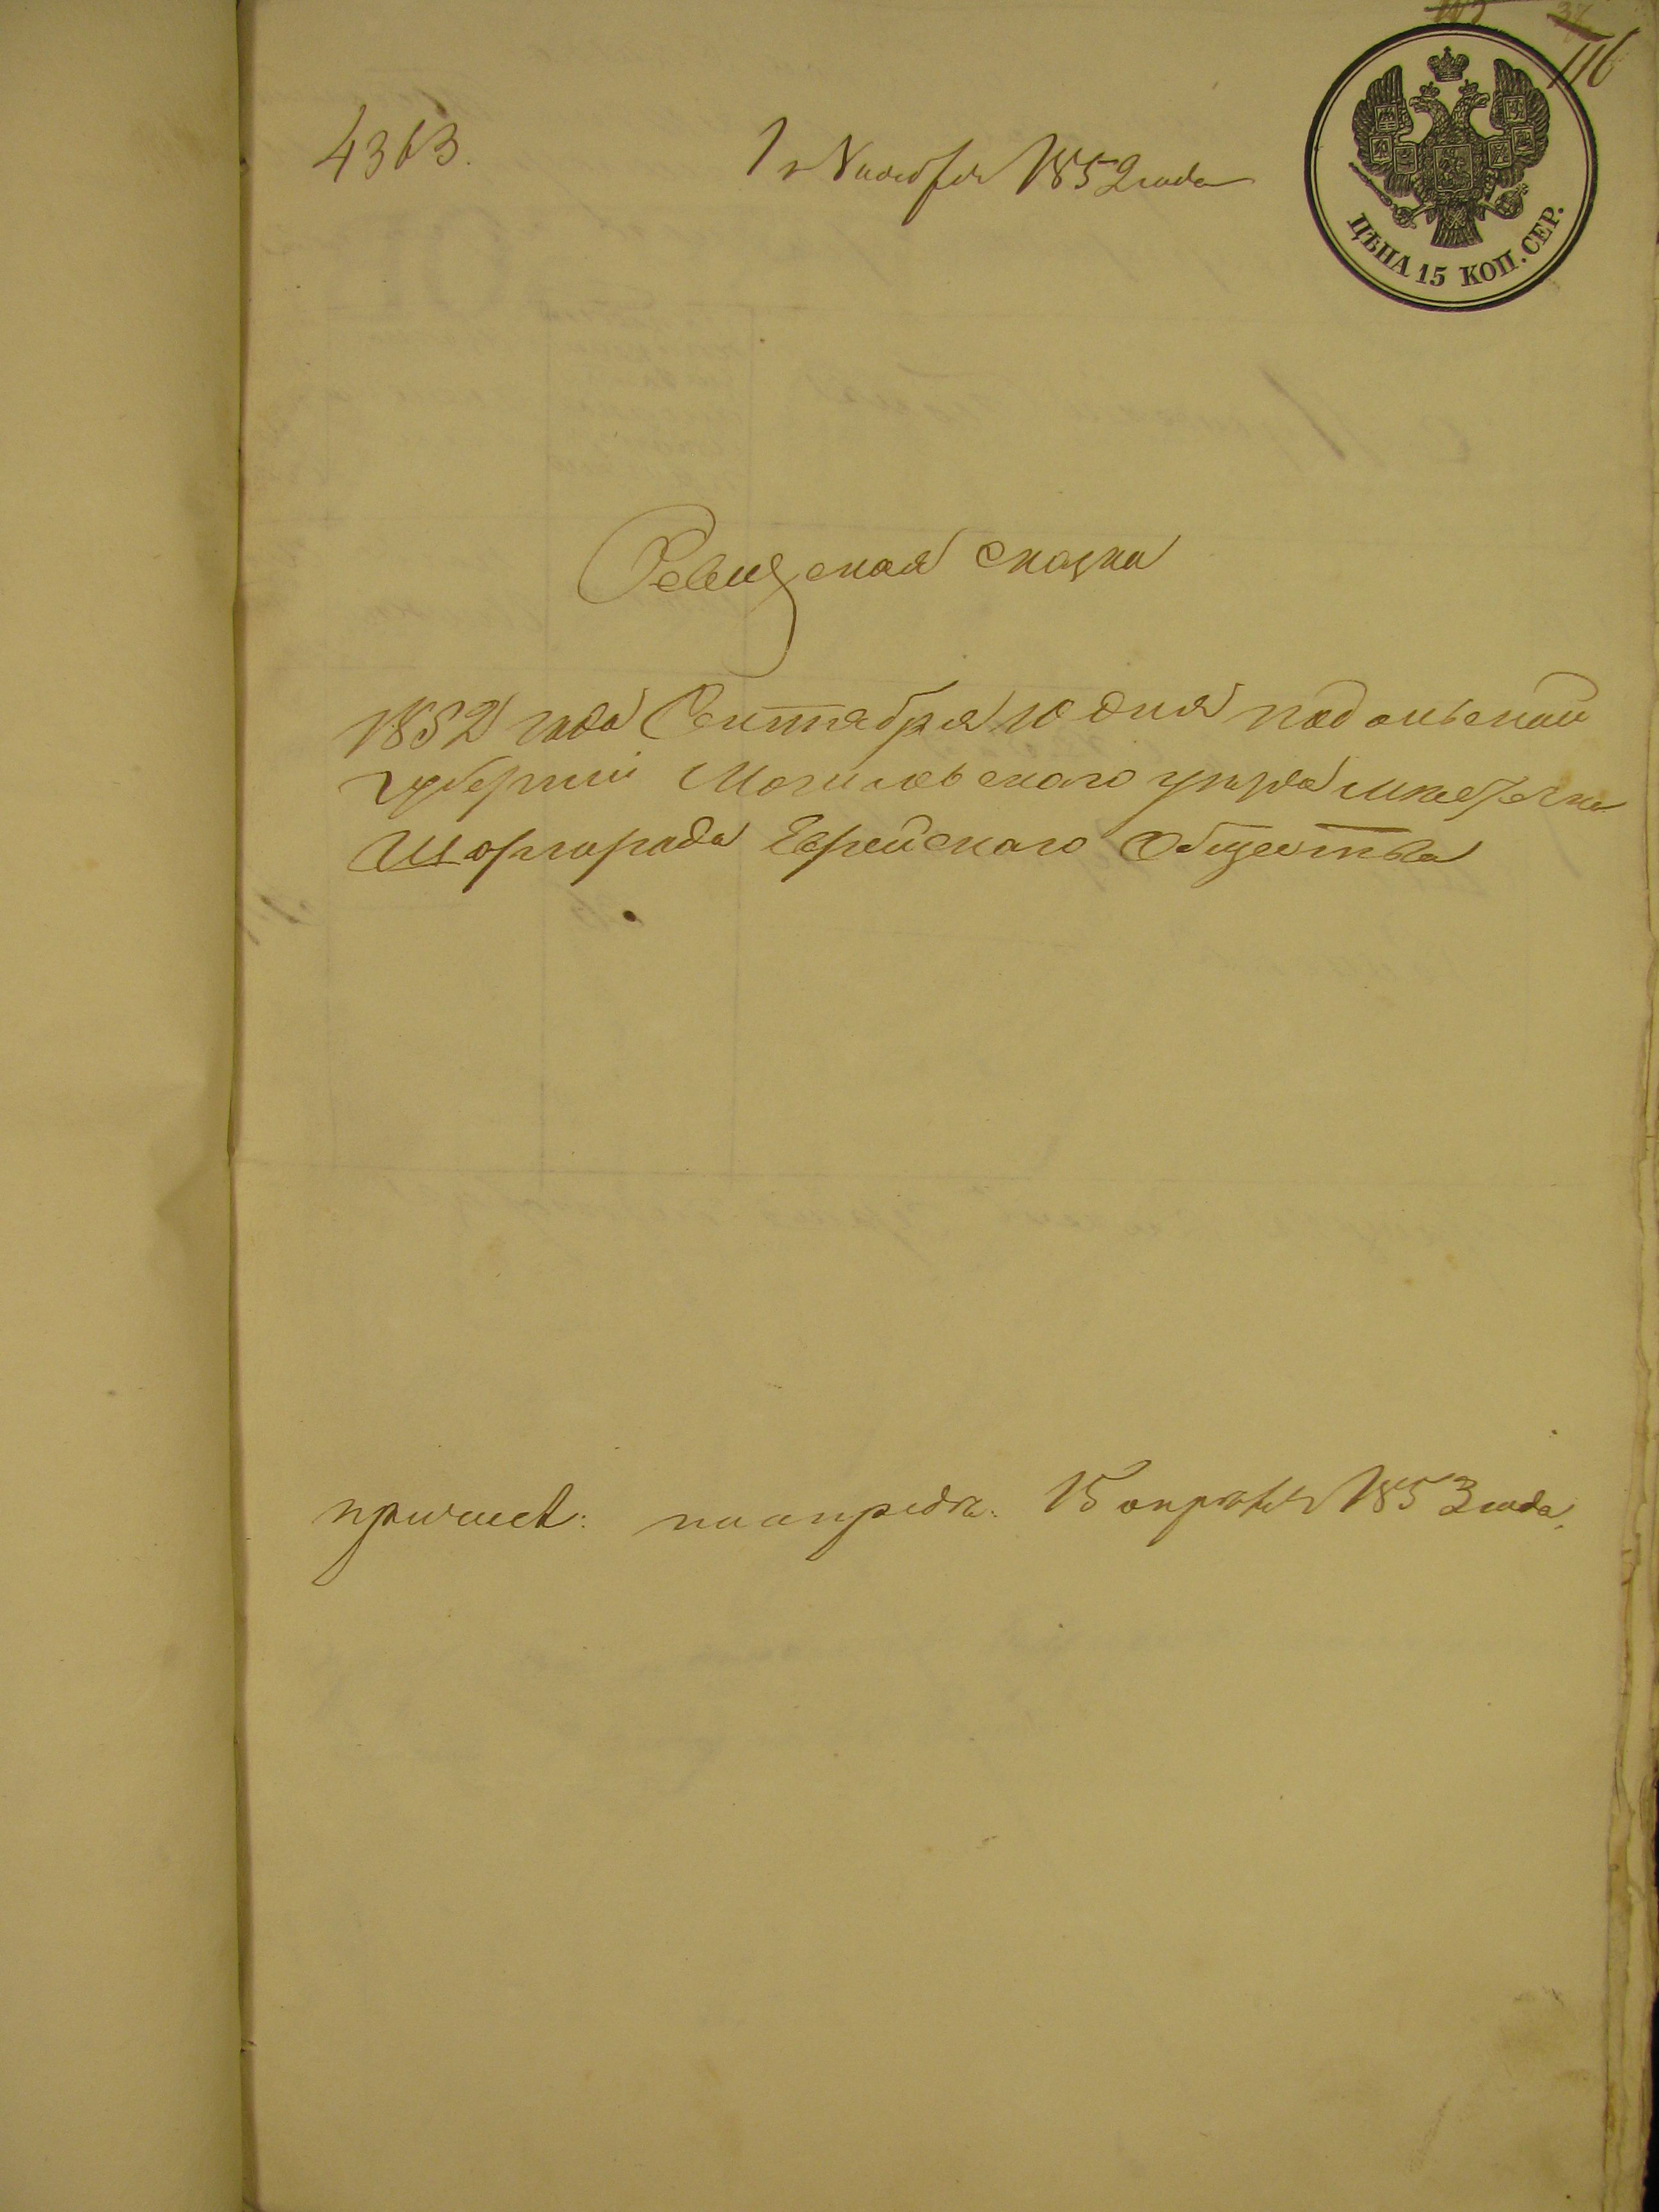 116
4363.
1 Ноября 1852 года
ЦѢНА 15 КОП. СЕР.
Ревизская сказка
1852 года Сентября 10 дня Подольской
губернии Могилевского уезда местечка
Шаргорода Еврейского Общества
15 апреля 1853 года.